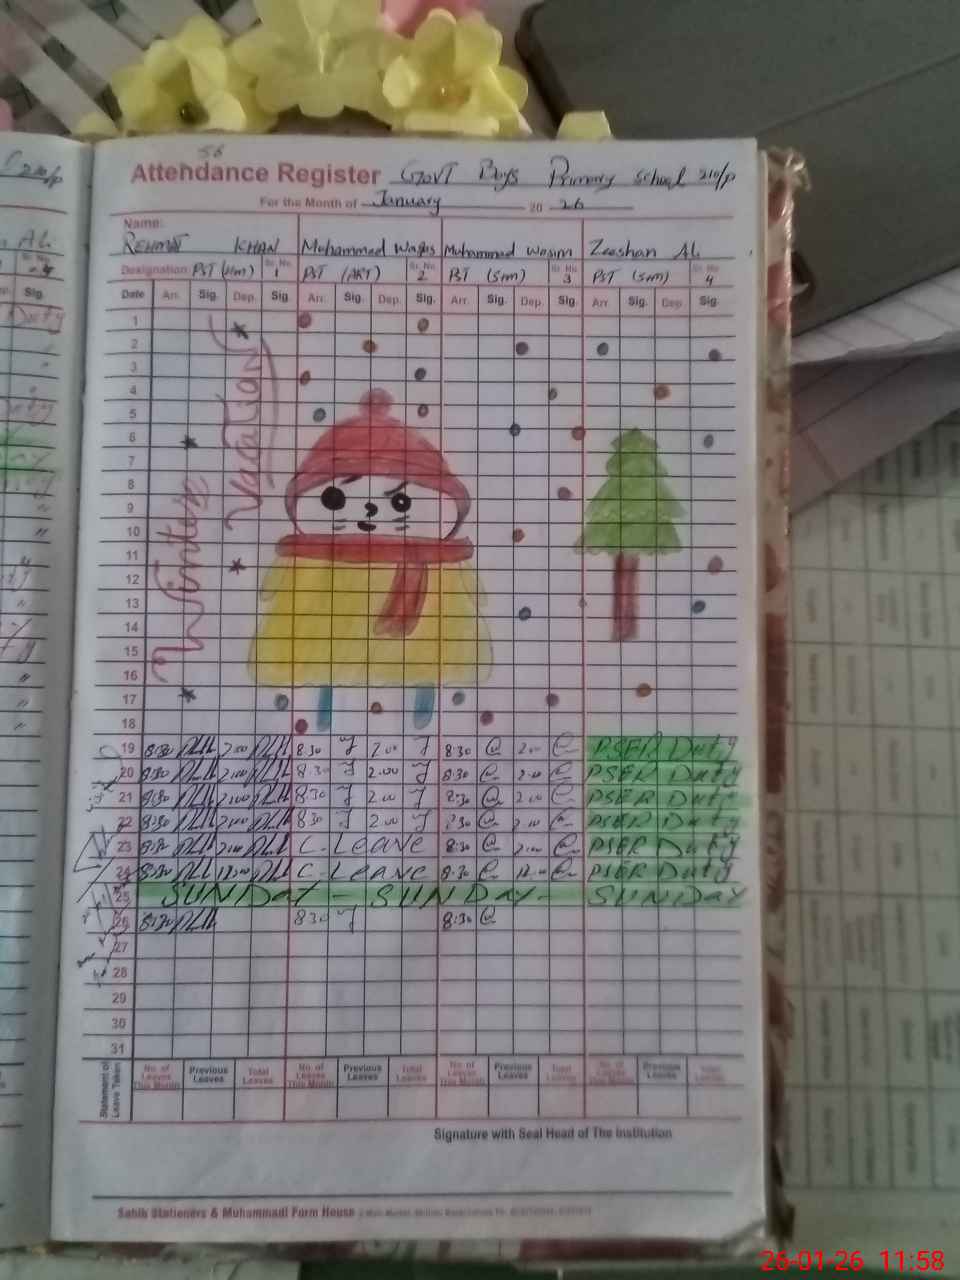 56
Attendance Register Govt Boys Primary School 210/P
For the Month of January 20 26
Name:
REHMAT KHAN Muhammad Waqas Muhammad Wasim Zeeshan Ali
Designation PST (Hm) Sr. No. 1 PST (ART) Sr. No. 2 PST (Sm) Sr. No. 3 PST (Sm) Sr. No. 4
Date Arr. Sig. Dep. Sig. Arr. Sig. Dep. Sig. Arr. Sig. Dep. Sig. Arr. Sig. Dep. Sig.
1
2
3
4
5
6
7
8
9
10
11
12
13
14
15
16
17
18
Winter
Vacation
19 8:30 2:00 8:30 2:00 8:30 2:00 PSER Duty
20 8:30 2:00 8:30 2:00 8:30 2:00 PSER Duty
21 8:30 2:00 8:30 2:00 8:30 2:00 PSER Duty
22 8:30 2:00 8:30 2:00 8:30 2:00 PSER Duty
23 8:30 2:00 C. Leave 8:30 2:00 PSER Duty
24 8:30 12:00 C. Leave 8:30 12:00 PSER Duty
25 SUNDAY - SUNDAY - SUNDAY
26 8:30 8:30 8:30
27
28
29
30
31
Statement of Leave Taken
No. of Leaves This Month Previous Leaves Total Leaves No. of Leaves This Month Previous Leaves Total Leaves No. of Leaves This Month Previous Leaves Total Leaves No. of Leaves This Month Previous Leaves Total Leaves
Signature with Seal Head of The Institution
Sahib Stationers & Muhammadi Form House
26-01-26 11:58